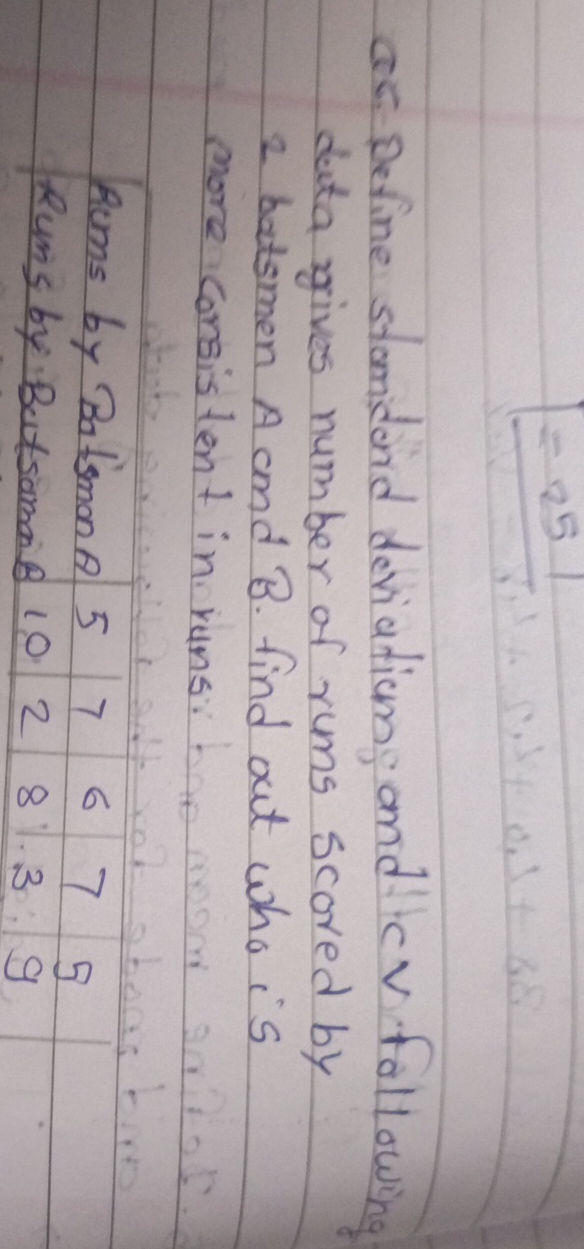 = 25
Define standard deviation and CV following
data gives number of runs scored by
2 batsmen A and B. find out who is
more consistent in runs.
Runs by Batsman A 5 7 6 7 5
Runs by Batsman B 10 2 8 3 9